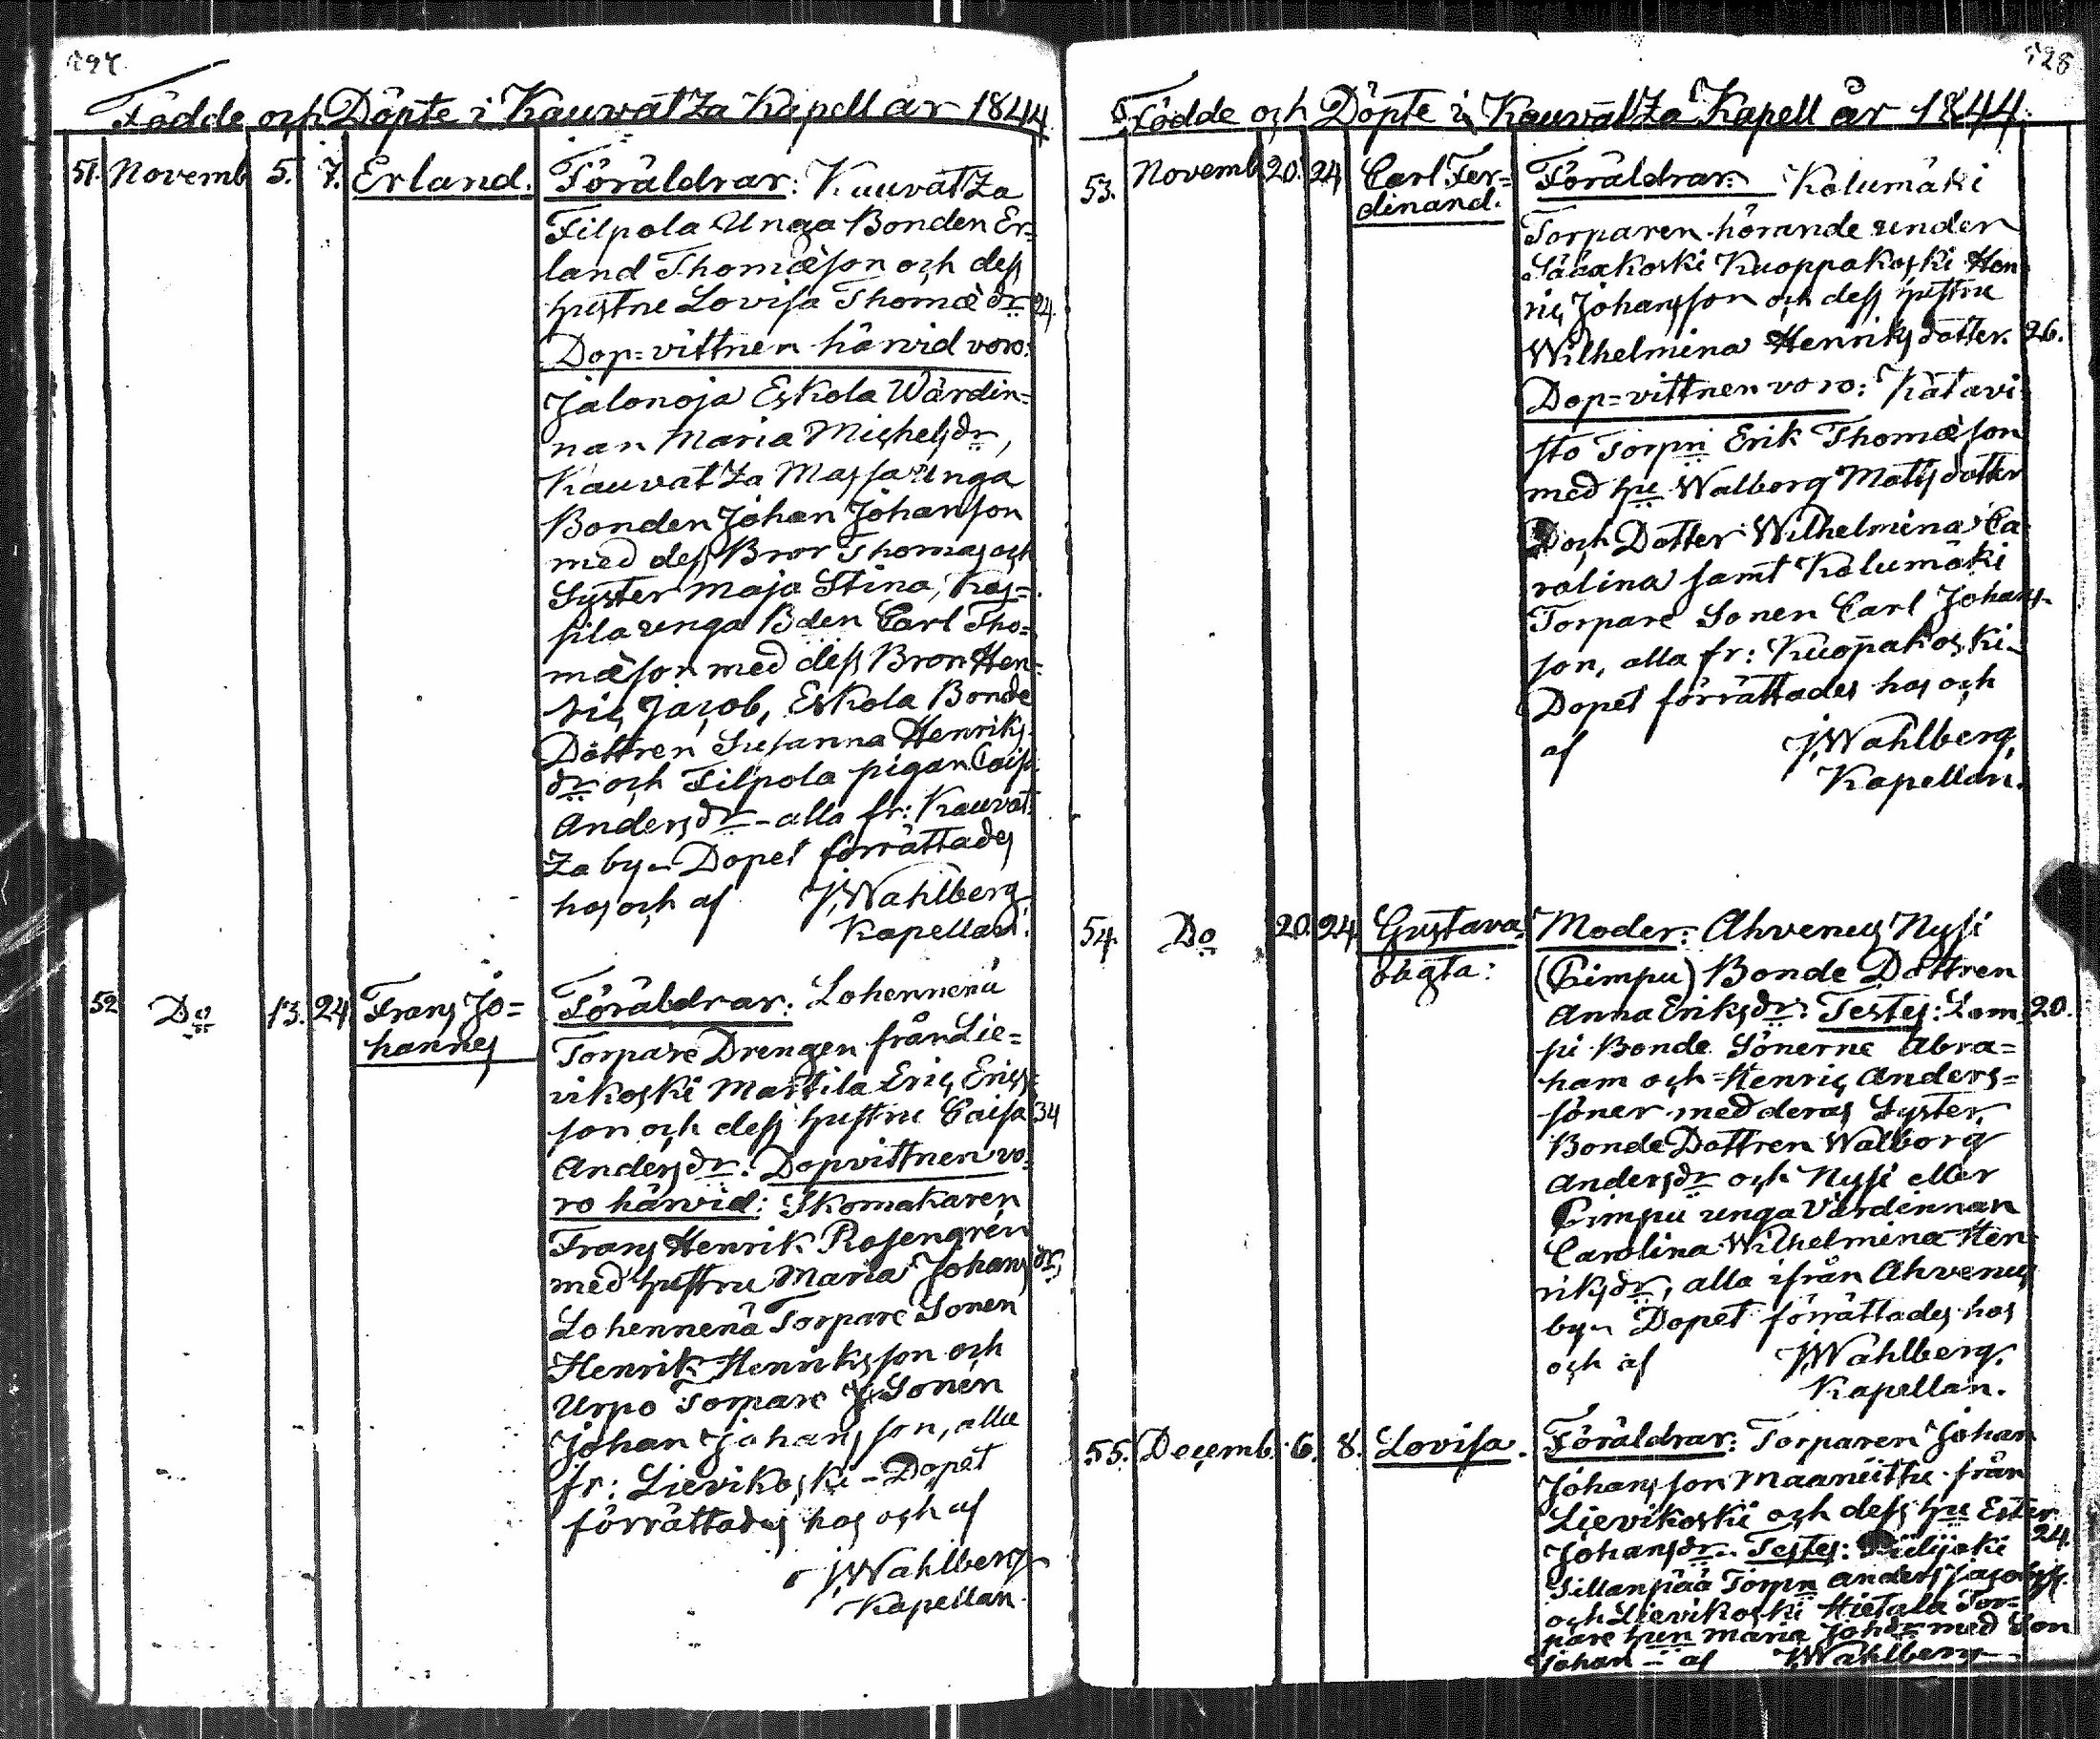 Födde och Döpte i Kauvatza Kapell år 1844
51. Novemb 5. 7. Erland. Föräldrar: Kauvatza
Filpola Unga Bonden Er=
land Thomæson och dess
hustru Lovisa Thomædr 24.
Dop=vittnen härvid voro:
Jalonoja Eskola Wärdin=
nan Maria Michelsdr,
Kauvatza Massa Unga
Bonden Johan Johanson
med dess Bror Thomas och
Syster Maja Stina, Kas=
sila unga Bden Carl Tho=
mæson med dess Bror Hen=
ric Jacob, Eskola Bonde
Döttren Susanna Henriks
dr och Filpola pigan Caisa
Andersdr - alla fr: Kauvat
za by - Dopet förrättades
hos och af J. Wahlberg
Kapellan.
52 Do 13. 24 Frans Jo= Föräldrar: Lohennenä
hannes
Torpare Drengen från Lie=
vikoski Marttila Eric Erics
son och dess hustru Caisa 34
Andersdr. Dopvittnen vo=
ro härvid: Skomakaren
Frans Henrik Rosengrén
med hustru Maria Johansdr,
Lohennenä Torpare Sonen
Henrik Henriksson och
Urpo Torpare Sonen
Johan Johansson, alla
fr: Lievikoski - Dopet
förrättades hos och af
J. Wahlberg
Kapellan.
528
Födde och Döpte i Kauvatza Kapell år 1844.
53. Novemb 20. 24 Carl Fer= Föräldrar: Kolumäki
dinand.
Torparen hörande under
Sääxkoski Kuoppakoski Hen
ric Johansson och dess hustru
Wilhelmina Henriksdotter. 26.
Dop=vittnen voro: Katavi
sto Torpn Erik Thomæson
med hu Walborg Mattsdotter
och Dotter Wilhelmina Ca
rolina samt Kolumäki
Torpare Sonen Carl Johans-
son, alla fr: Kuopakoski -
Dopet förrättades hos och
af J. Wahlberg,
Kapellan.
54. Do 20. 24 Gustava. Moder: Ahvenus Nysi
oägta: (Cimpu) Bonde Dottren
Anna Eriksdr: Testes: Lam 20.
pi Bonde Sönerne Abra=
ham och Henric Anders=
söner med deras Syster
Bonde Dottren Walborg
Andersdr och Nysi eller
Cimpu unga Värdinnan
Carolina Wilhelmina Hen
riksdr, alla ifrån Ahvenus
by - Dopet förrättades hos
och af J. Wahlberg.
Kapellan.
55. Decemb. 6. 8. Lovisa. Föräldrar: Torparen Johan
Johansson Maanittu från
Lievikoski och dess hu Ester
Johansdr. Testes: 24.
Sillanpää Torpn Anders Jacobss.
och Lievikoski Hietala Tor=
pare hun Maria Johdr med Son
Johan - af J. Wahlberg